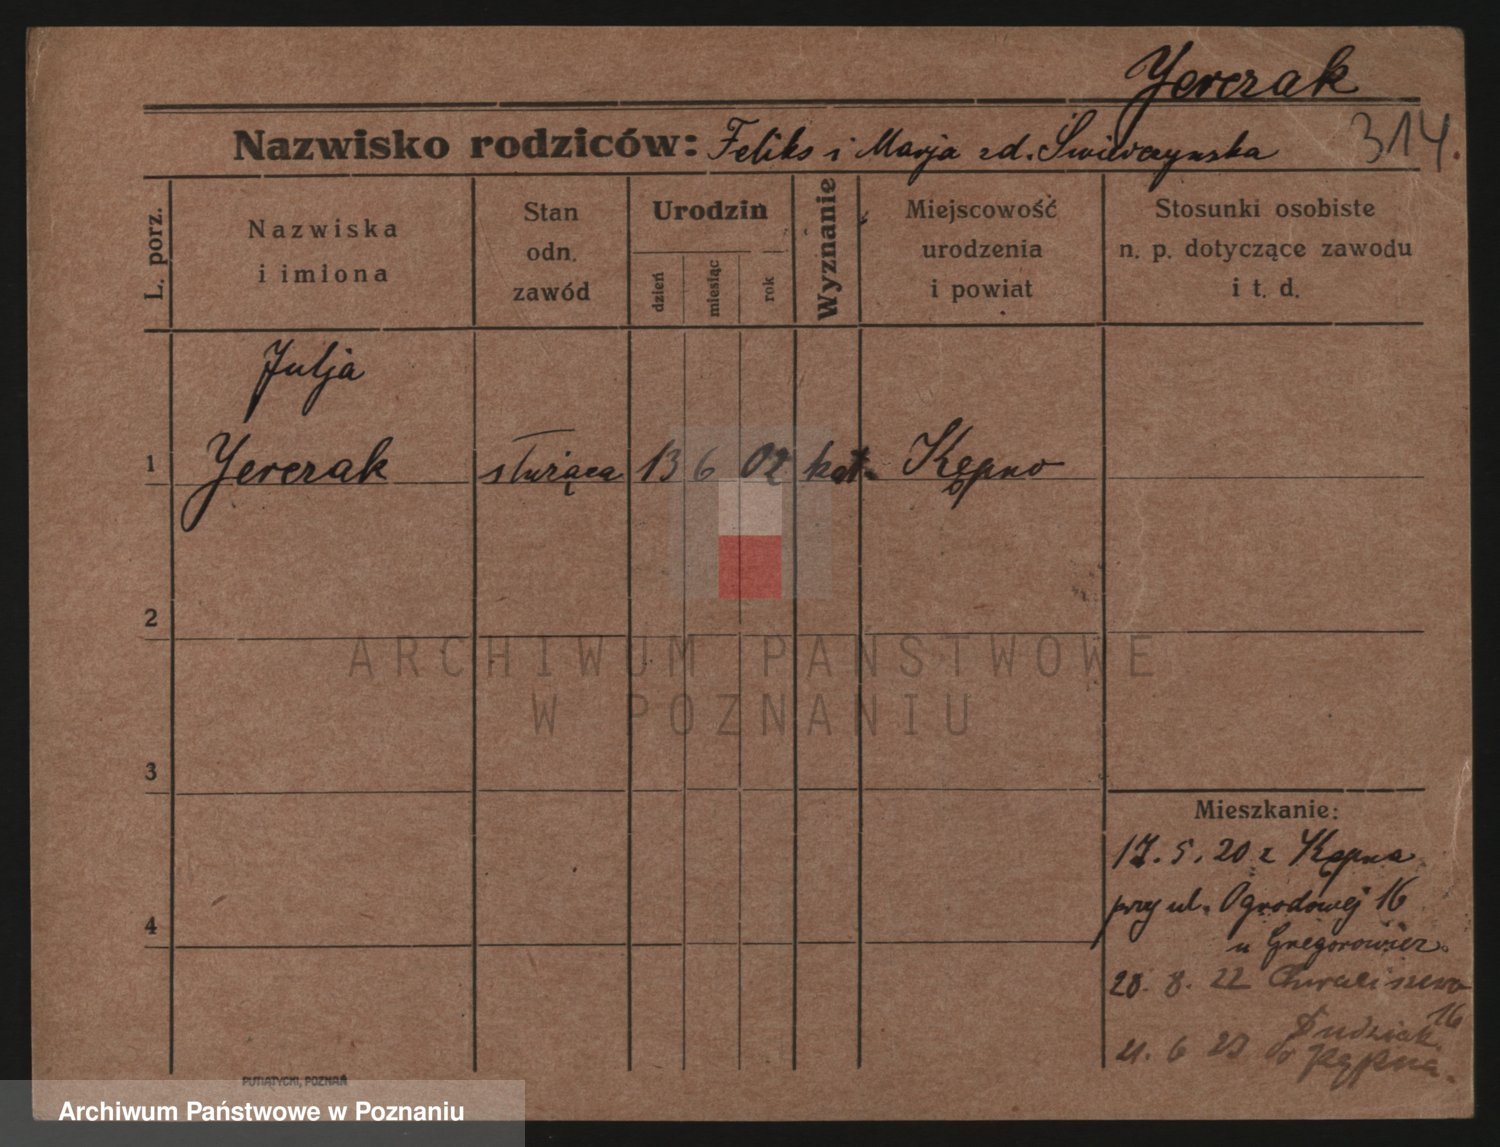 Jerczak
314.
Nazwisko rodziców: Feliks i Marja zd. Świerczynska
L. porz.
Nazwiska
i imiona
Stan
odn.
zawód
Urodzin
dzień
miesiąc
rok
Wyznanie
Miejscowość
urodzenia
i powiat
Stosunki osobiste
n. p. dotyczące zawodu
i t. d.
Julja
1 Jerczak służąca 13 6 02 kat. Kępno
2
3
4
ARCHIWUM PAŃSTWOWE
W POZNANIU
Mieszkanie:
17. 5. 20 z Kępna
przy ul. Ogrodowej 16
u Gregorowicz.
28. 8. 22 Chwaliszewo
16
Dudziak.
21. 6 23 do Kępna.
PUTIATYCKI, POZNAŃ
Archiwum Państwowe w Poznaniu